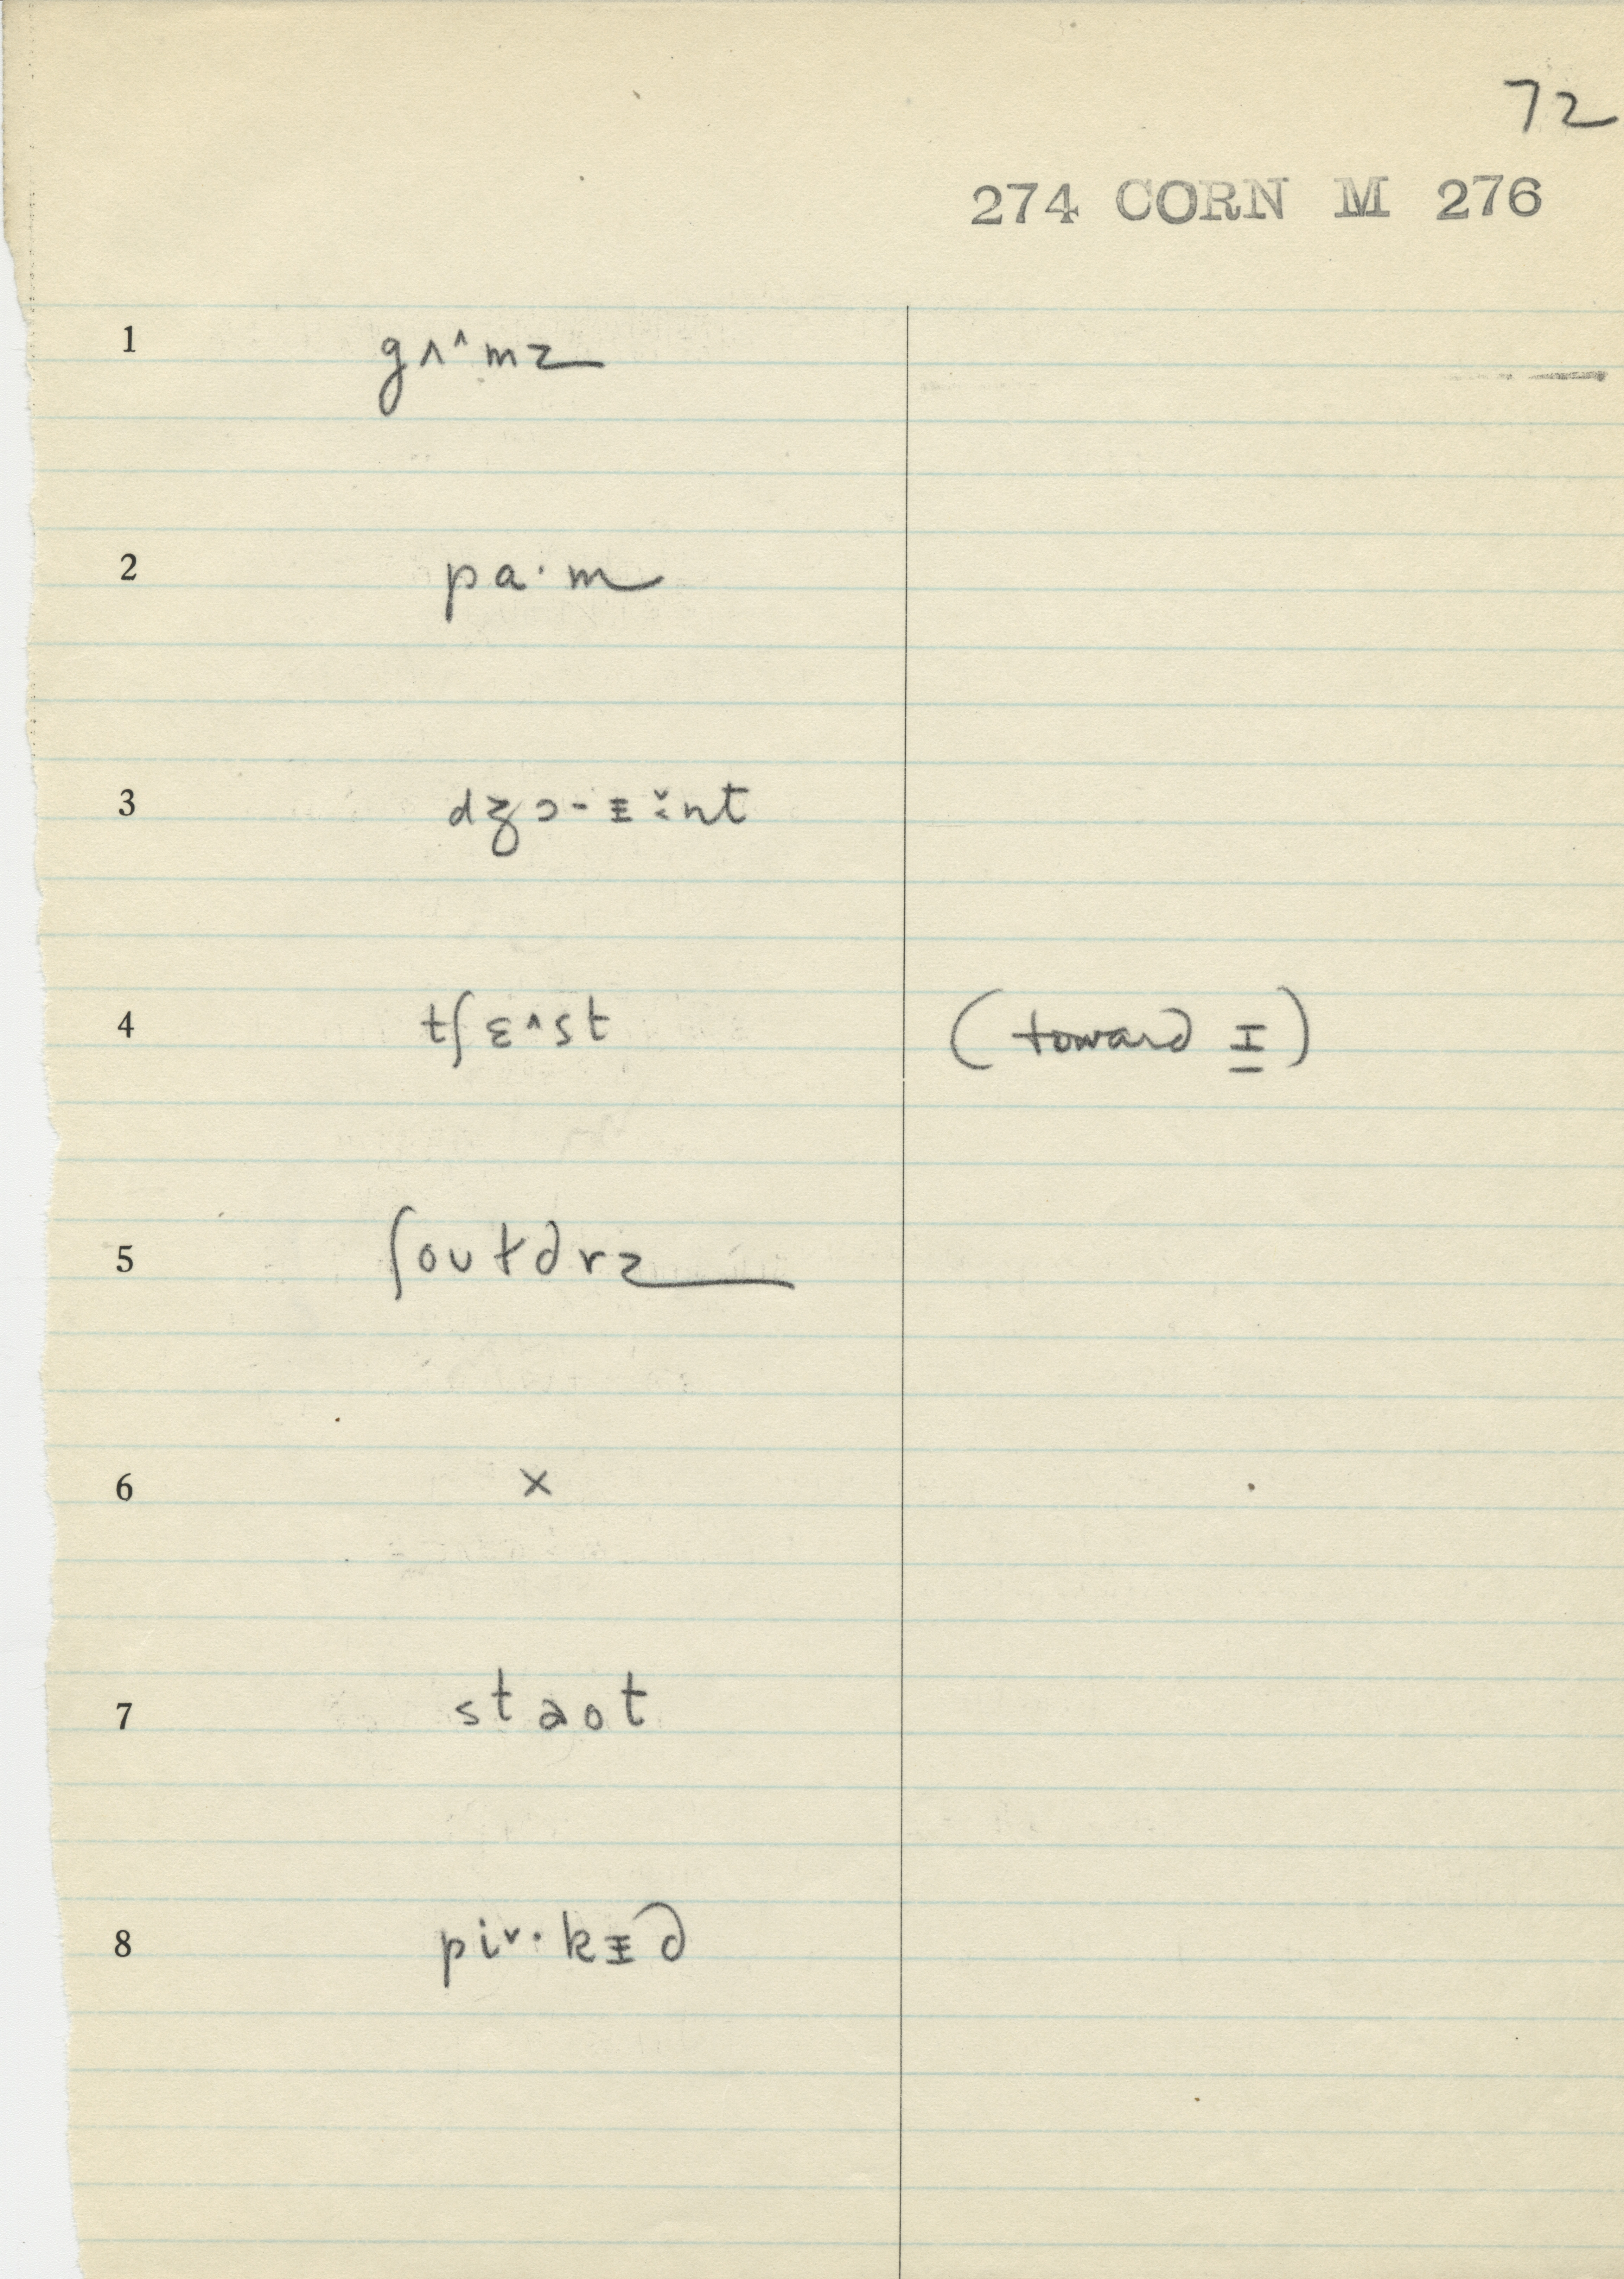 72
274 CORN M 276
1 gʌ˄mz
2 pa·m
3 dʒɔ-ɪ ə̌nt
4 tʃɛ˄st (toward I)
5 ʃoutərz
6 x
7 staot
8 pi˅·kɪd